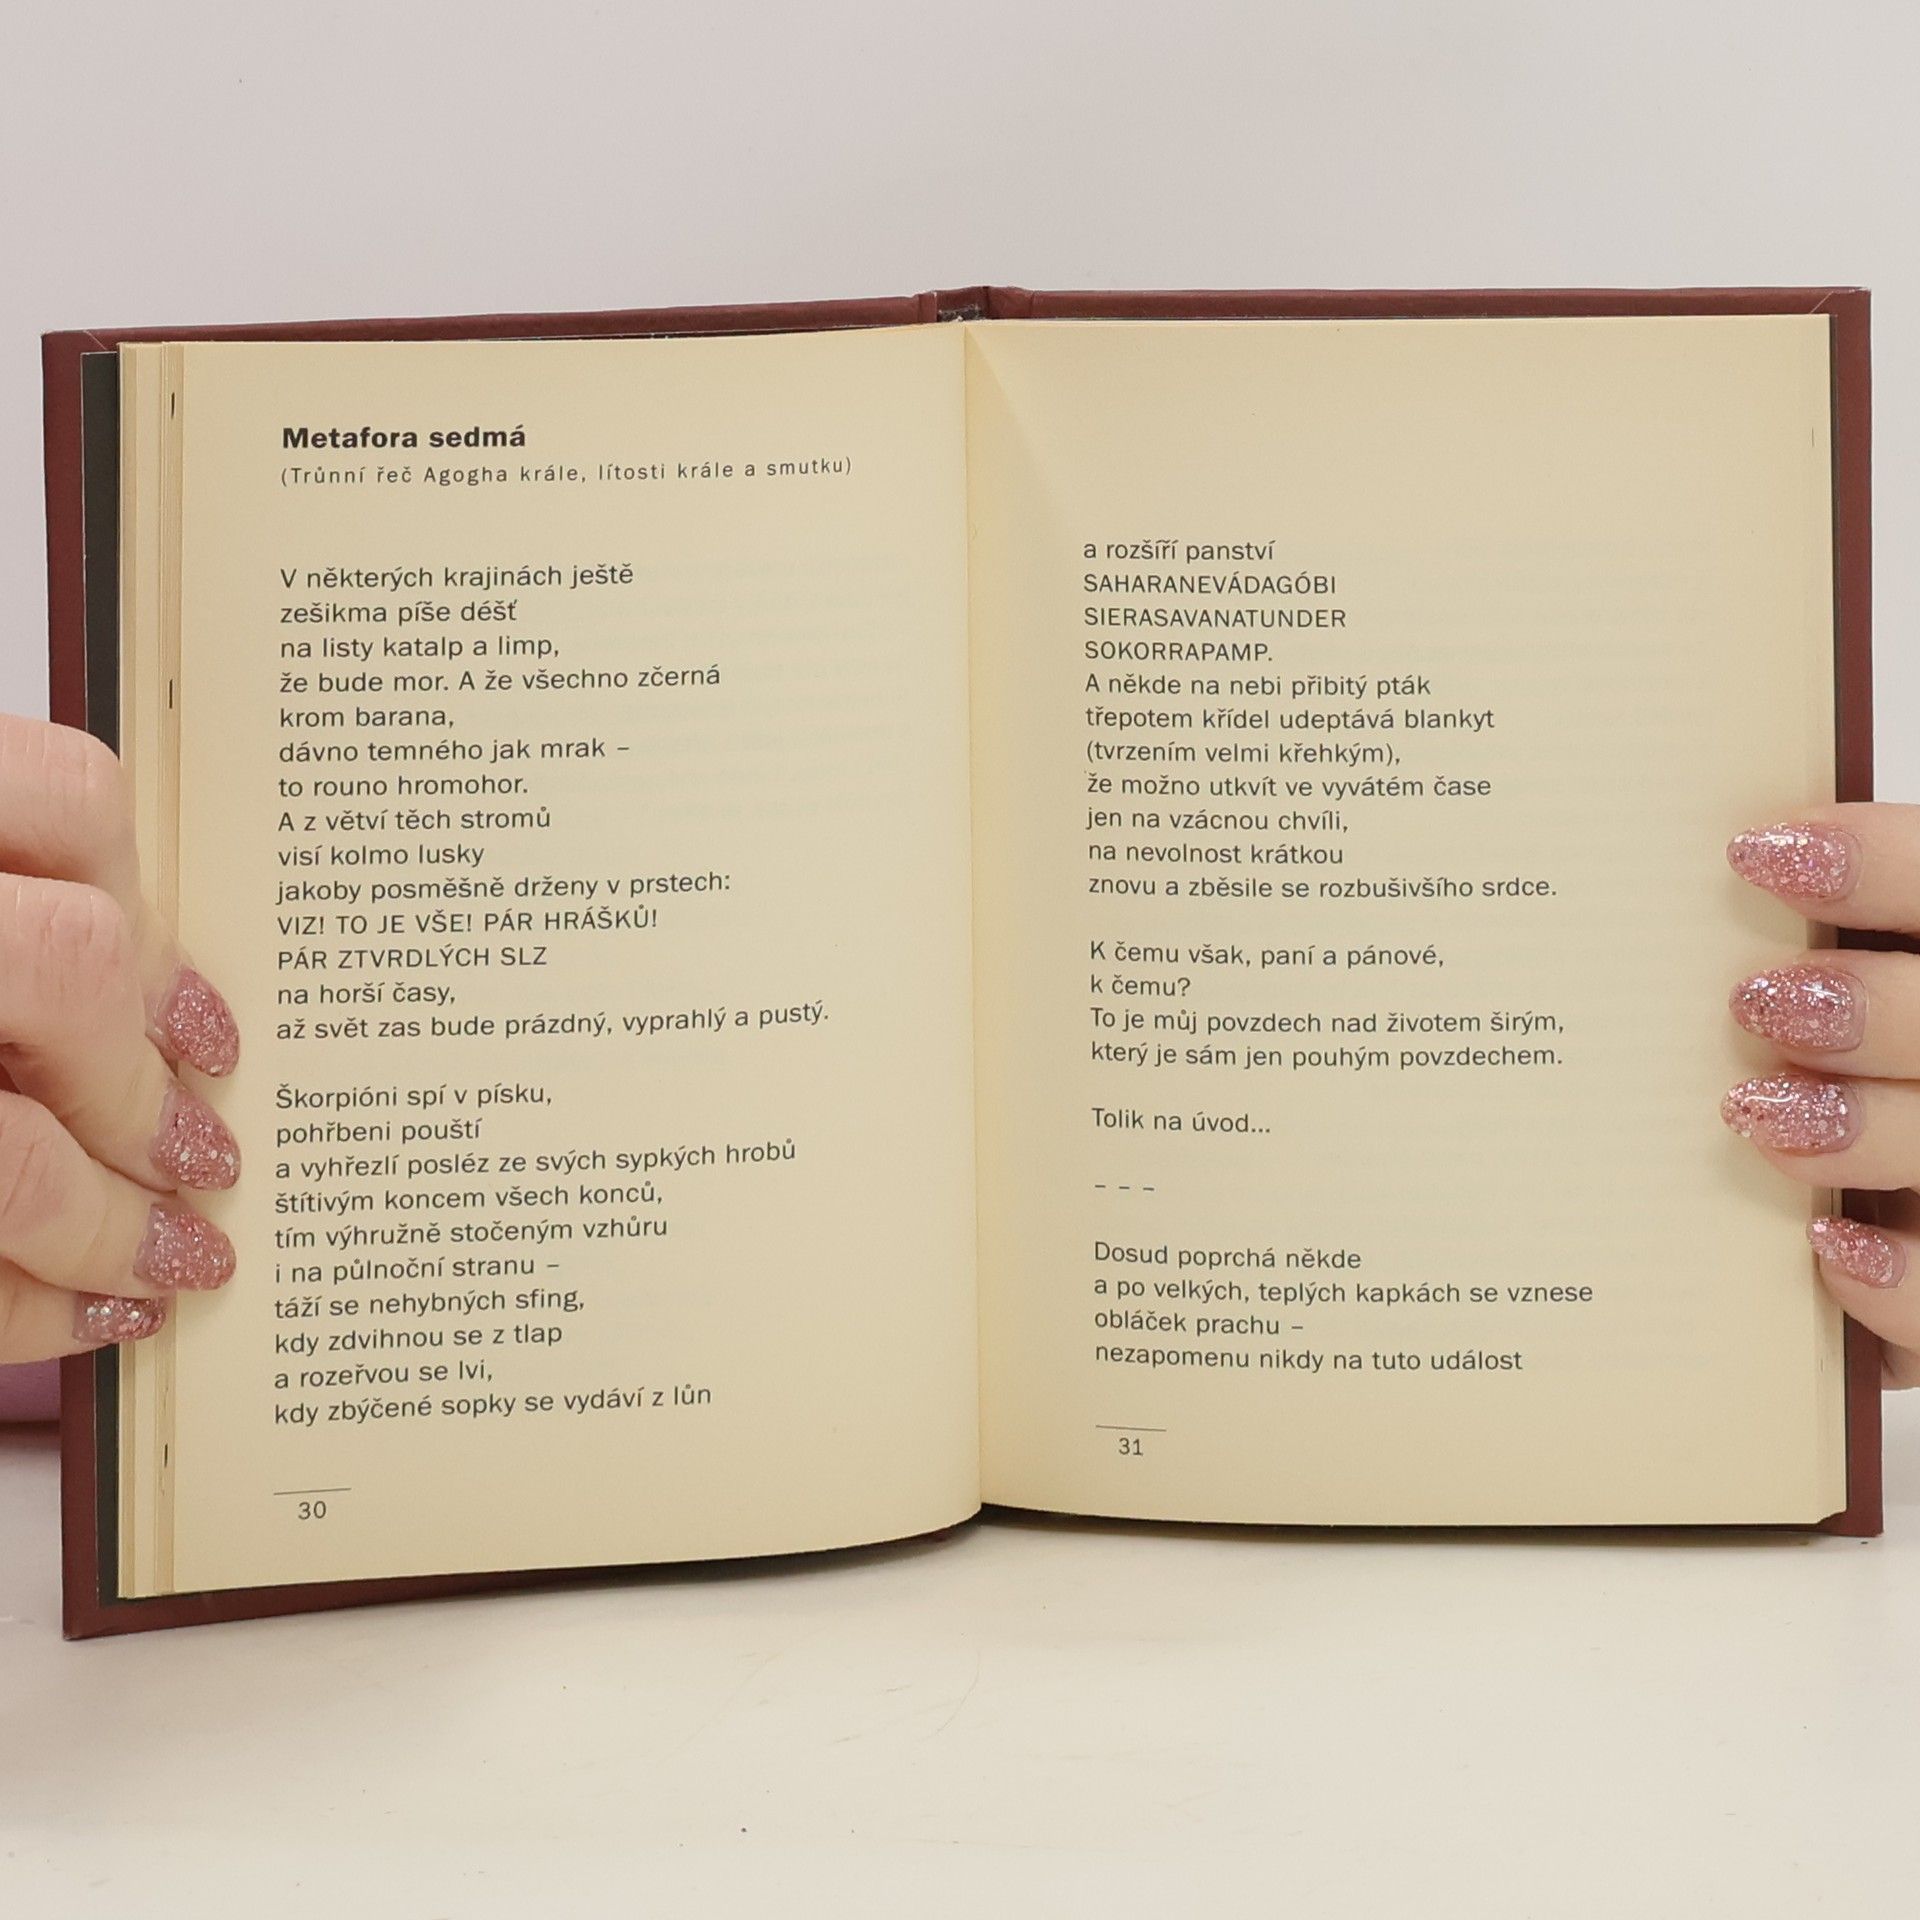 Metafora sedmá
(Trůnní řeč Agogha krále, lítosti krále a smutku)
V některých krajinách ještě
zešikma píše déšť
na listy katalp a limp,
že bude mor. A že všechno zčerná
krom barana,
dávno temného jak mrak –
to rouno hromohor.
A z větví těch stromů
visí kolmo lusky
jakoby posměšně drženy v prstech:
VIZ! TO JE VŠE! PÁR HRÁŠKŮ!
PÁR ZTVRDLÝCH SLZ
na horší časy,
až svět zas bude prázdný, vyprahlý a pustý.
Škorpióni spí v písku,
pohřbeni pouští
a vyhřezlí posléz ze svých sypkých hrobů
štítivým koncem všech konců,
tím výhružně stočeným vzhůru
i na půlnoční stranu –
táží se nehybných sfing,
kdy zdvihnou se z tlap
a rozeřvou se lvi,
kdy zbýčené sopky se vydáví z lůn
30
a rozšíří panství
SAHARANEVÁDAGÓBI
SIERASAVANATUNDER
SOKORRAPAMP.
A někde na nebi přibitý pták
třepotem křídel udeptává blankyt
(tvrzením velmi křehkým),
že možno utkvít ve vyvátém čase
jen na vzácnou chvíli,
na nevolnost krátkou
znovu a zběsile se rozbušivšího srdce.
K čemu však, paní a pánové,
k čemu?
To je můj povzdech nad životem širým,
který je sám jen pouhým povzdechem.
Tolik na úvod...
– – –
Dosud poprchá někde
a po velkých, teplých kapkách se vznese
obláček prachu –
nezapomenu nikdy na tuto událost
31